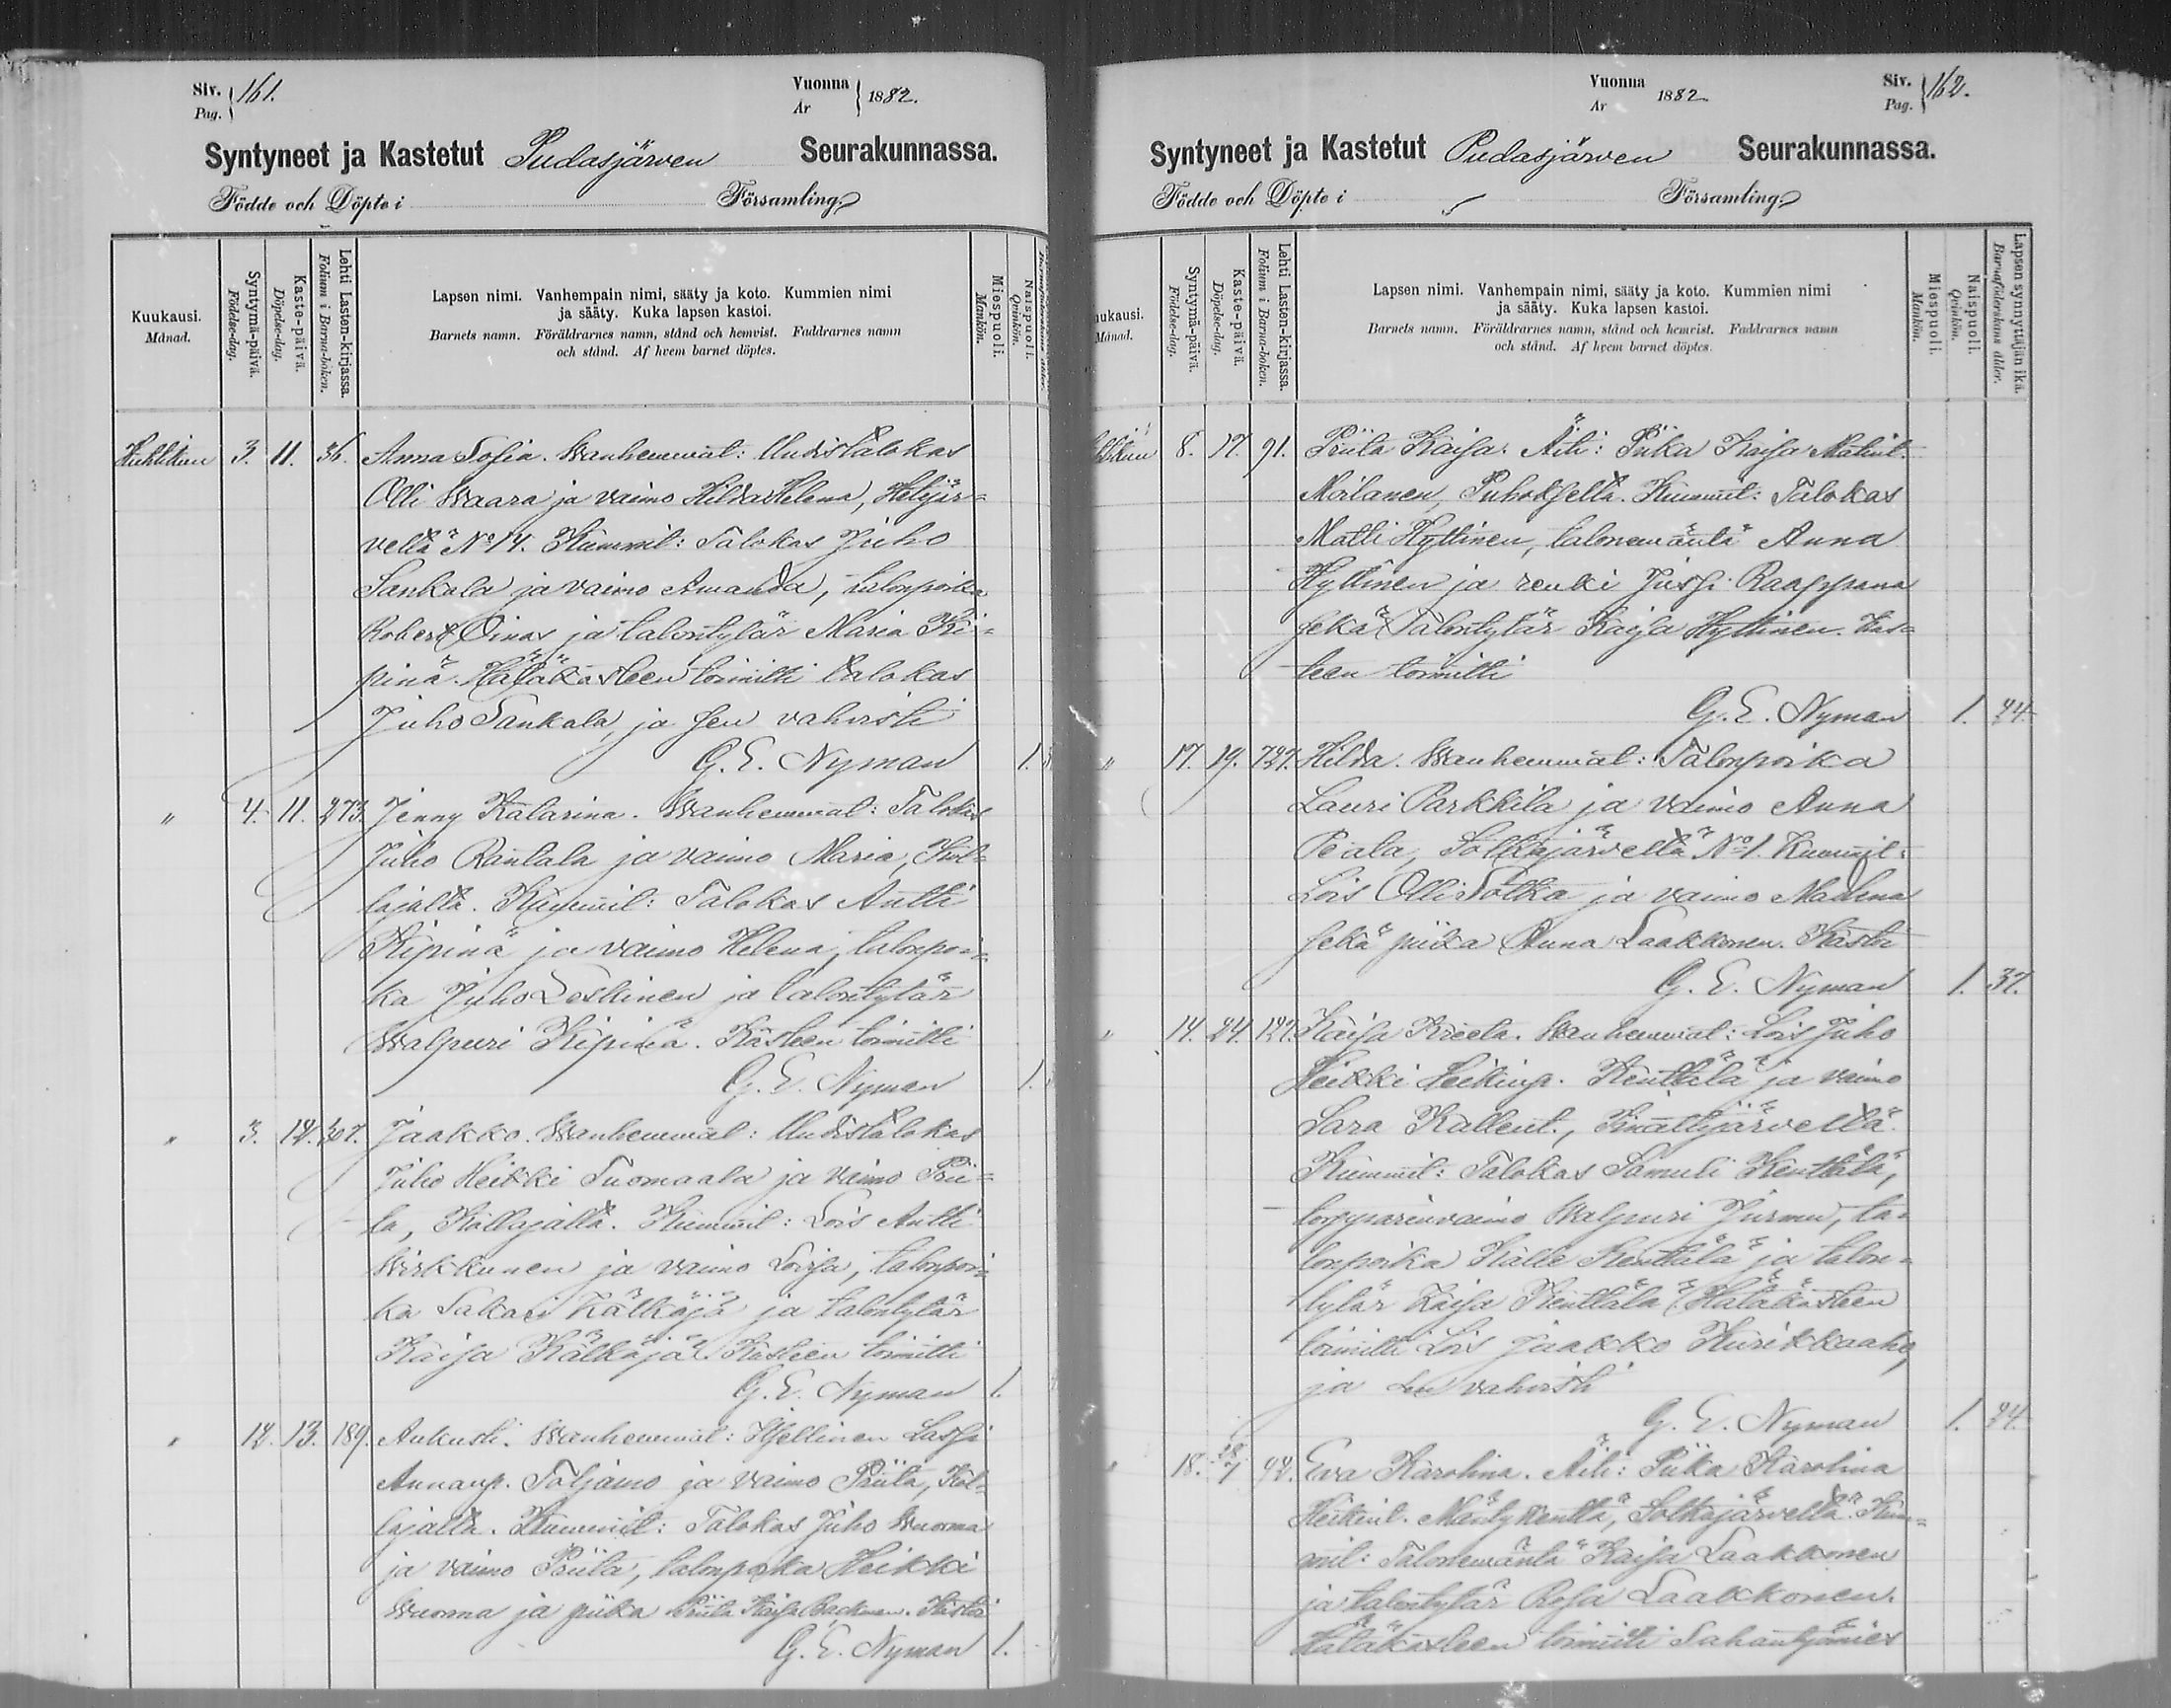 Siv. Pag. 161.
Vuonna Ar 1882.
Syntyneet ja Kastetut Pudasjärven Seurakunnassa.
Födde och Döpte i Församling
Kuukausi. Månad.
Syntymä-päivä. Födelse-dag.
Kaste-päivä. Döpelse-dag.
Lehti Lasten-kirjassa. Folium i Barna-boken.
Lapsen nimi. Vanhempain nimi, sääty ja koto. Kummien nimi
ja sääty. Kuka lapsen kastoi.
Barnets namn. Föräldrarnes namn, stånd och hemvist. Faddrarnes namn
och stånd. Af hvem barnet döptes.
Miespuoli. Mankön.
Naispuoli. Qvinkön.
Huhtikuu 3. 11. 36. Anna Sofia. Wanhemmat: Uudistalokas
Olli Waara ja vaimo Hilda Helena, Hetejär=
vellä No 14. Kummit: Talokas Juho
Sankala ja vaimo Amanda, talonpoika
Robert Oinas ja talontytär Maria Ki=
pinä. Hätäkasteen toimitti talokas
Juho Sankala, ja sen vahvisti
G. E. Nyman 1.
" 4. 11. 273. Jenny Katarina. Wanhemmat: Talokas
Juho Rantala ja vaimo Maria, Kol=
lajalta. Kummit: Talokas Antti
Kipinä ja vaimo Helena, talonpoi=
ka Juho Leskinen ja talontytär
Walpuri Kipinä. Kasteen toimitti
G. E. Nyman 1.
" 3. 12. 307. Jaakko. Wanhemmat: Uudistalokas
Juho Heikki Tuomaala ja vaimo Prii=
ta, Kollajalta. Kummit: Lois Antti
Wirkkunen ja vaimo Loisa, talonpoi=
ka Sakari Kälkäjä ja talontytär
Kaisa Kälkäjä. Kasteen toimitti
G. E. Nyman 1.
" 12. 13. 189. Aukusti. Wanhemmat: Itsellinen Lassi
Annanp. Taljamo ja vaimo Priita, Kol=
lajalta. Kummit: Talokas Juho Wuorma
ja vaimo Priita, talonpoika Heikki
Wuorma ja piika Priita Kaisa Backman. Kastoi
G. E. Nyman 1.
Vuonna Ar 1882
Siv. Pag. 162.
Syntyneet ja Kastetut Pudasjärven Seurakunnassa.
Födde och Döpte i Församling
Kuukausi. Månad.
Syntymä-päivä. Födelse-dag.
Kaste-päivä. Döpelse-dag.
Lehti Lasten-kirjassa. Folium i Barna-boken.
Lapsen nimi. Vanhempain nimi, sääty ja koto. Kummien nimi
ja sääty. Kuka lapsen kastoi.
Barnets namn. Föräldrarnes namn, stånd och hemvist. Faddrarnes namn
och stånd. Af hvem barnet döptes.
Miespuoli. Mankön.
Naispuoli. Qvinkön.
Lapsen synnyttäjän ikä. Barnaföderskans ålder.
8. 17. 91. Priita Kaisa. Äiti: Piika Kaisa Matint.
Moilanen, Puhoksella. Kummit: Talokas
Matti Hyttinen, talonemäntä Anna
Hyttinen ja renki Jussi Raappana
sekä Talontytär Kaisa Hyttinen. Kas=
teen toimitti
G. E. Nyman 1. 24.
" 17. 19. 727. Hilda. Wanhemmat: Talonpoika
Lauri Parkkila ja vaimo Anna
Peala, Sotkajärvellä No 1. Kummit:
Lois Olli Sotka ja vaimo Madlena
sekä piika Anna Laakkonen. Kastoi
G. E. Nyman 1. 37.
" 14. 24. 127. Kaisa Kreeta. Wanhemmat: Lois Juho
Heikki Heikinp. Kenttälä ja vaimo
Sara Kallent., Sinättijärvellä.
Kummit: Talokas Samuli Kenttälä,
torpparinvaimo Walpuri Jurmu, ta=
lonpoika Kalle Kenttälä ja talon=
tytär Kaisa Kenttälä. Hätäkasteen
toimitti Lois Jaakko Kurikkaaho,
ja sen vahvisti
G. E. Nyman 1. 24.
" 18. 28/7 92. Eva Karolina. Äiti: Piika Karolina
Heikint. Mäntykenttä, Sotkajärvellä. Kum=
mit: Talonemäntä Kaisa Laakkonen
ja talontytär Rosa Laakkonen.
Hätäkasteen toimitti Sahantyömies